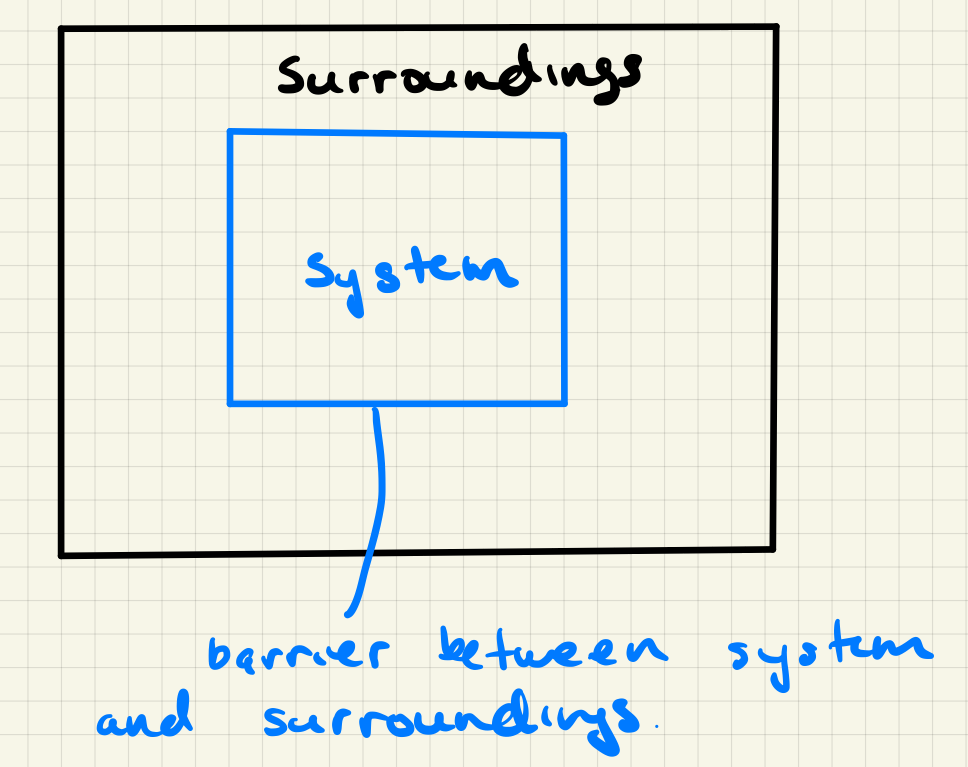 Surroundings
System
barrier between system
and surroundings.